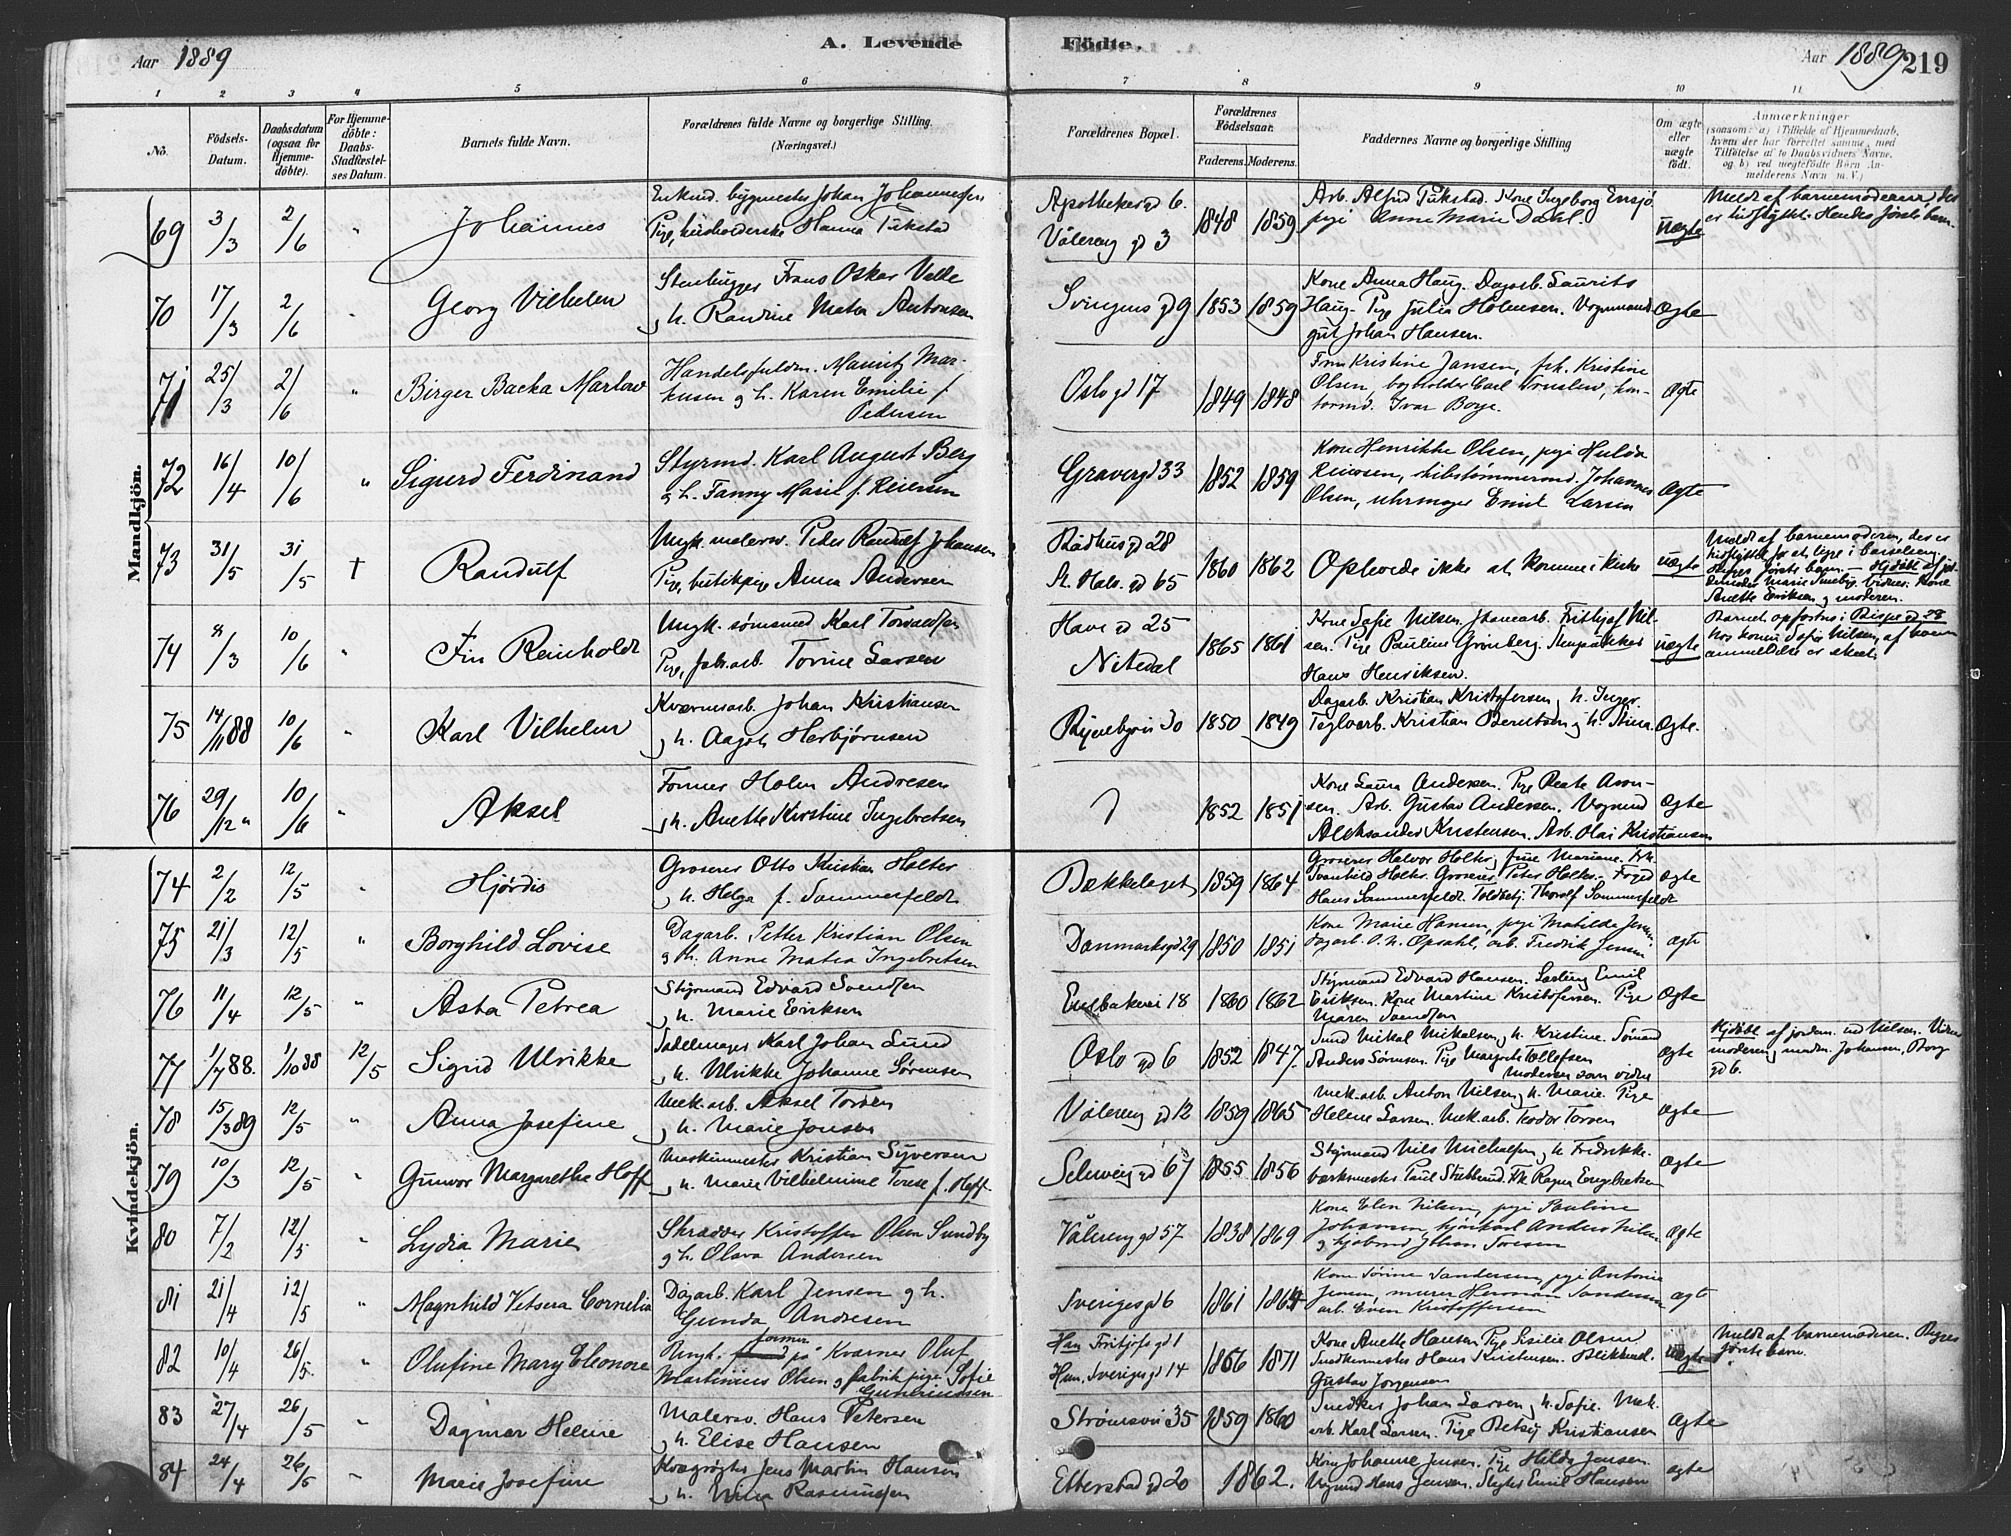 Aar 1889
A. Levende
Födte.
Aar 1889
219
1 2 3 4 5 6 7 8 9 10 11
No.
Födsels-
Datum.
Daabsdatum
(ogsaa for
Hjemme-
döbte).
For Hjemme-
döbte:
Daabs-
Stadfæstel-
ses Datum.
Barnets fulde Navn.
Forældrenes fulde Navne og borgerlige Stilling.
(Næringsvei.)
Forældrenes Bopæl.
Forældrenes
Födselsaar.
Faderens. Moderens.
Faddernes Navne og borgerlige Stilling
Om ægte
eller
uægte
födt.
Anmærkninger
(saasom: a) i Tilfælde af Hjemmedaab,
hvem der har forrettet samme, med
Tilföielse af to Daabsvidners Navne,
og b) ved uegtefödte Börn An-
melderens Navn m. V.)
Mandkjön.
69 3/3 2/6 " Johannes
Enkmd. bygmester Johan Johannessen
Pige, husholderske Hanna Tukstad
Apothekergd 6.
Vålereng gd 3
1848 1859
Arb. Alfred Tukstad. Kone Ingeborg Ensjø
pige Anne Marie Dahl.
uægte
Meldt af barnemoderen, der
er hidflyttet. Hendes første barn.
70 17/3 2/6 " Georg Vilhelm
Stenhugger Frans Oskar Valle
og h. Randine Mathea Antonsen
Svingens gd 9 1853 1859
Kone Anna Haug. Dagarb. Laurits
Haug. Pige Julia Holmsen. Vognmands-
gut Johan Hansen.
Ægte
71 25/3 2/6 " Birger Backa Martow
Handelsfuldm. Mauritz Mar-
kusen og h. Karen Emilie f.
Pedersen
Oslo gd 17 1849 1848
Fru Kristine Jansen, frk. Kristine
Olsen, bogholder Carl Tønslew, kon-
tormd. Ivar Borge.
Ægte
72 16/4 10/6 " Sigurd Ferdinand
Styrmd. Karl August Berg
og h. Fanny Marie f. Reiersen
Gravergd 33 1852 1859
Kone Henrikke Olsen, pige Hulda
Reiersen, skibstømmermd. Johannes
Olsen, uhrmager Emil Larsen
Ægte
73 31/5 31/5 † Randulf
Ungk. malersv. Peder Randulf Johansen
Pige, butikpige Anna Andersen
Rådhusgd 28
St. Halv. gd 65
1860 1862
Oplevede ikke at komme i kirke
uægte
Meldt af barnemoderen, der er
hidflyttet for at ligge i barselseng.
Begges første barn. — Hjdøbt af jor-
demoder Marie Smeby. Vidner: Kone
Anette Eriksen og moderen.
74 8/3 10/6 " Fin Reinholdt
Ungk. sømsmed Karl Torvaldsen
Pige, fabr.arb. Torine Larsen
Have gd 25
Nitedal
1865 1861
Kone Sofie Nilsen, Jernarb. Frithjof Nil-
sen. Pige Pauline Grønberg.
Hans Henriksen.
uægte
Barnet opfostres i Bispegd 28
hos konen Sofie Nilsen, af hvem
anmeldelse er skeet.
75 14/11 88 10/6 " Karl Vilhelm
Kværnerarb. Johan Kristiansen
og h. Aagot Herbjørnsen
Ryenbgvei 30 1850 1849
Dagarb. Kristian Kristofersen og h. Inger.
Teglv.arb. Kristian Berntsen og h. Anna.
Ægte.
76 29/12 " 10/6 " Aksel
Former Holm Andresen
og h. Anette Kirstine Ingebretsen
? 1852 1851
Kone Laura Andersen. Pige Beate Arn-
sen. Arb. Gustav Andersen. Vognmd
Aleksander Kristensen. Arb. Olai Kristiansen
Ægte
Kvindekjön.
74 2/2 12/5 " Hjørdis
Groserer Otto Kristian Holter
og h. Helga f. Sommerfeldt
Bækkelaget 1859 1864
Groserer Halvor Holter, frue Mariane. Frk.
Svanhild Holter. Groserer Peter Holter. Foged
Hans Sommerfeldt. Toldbetj. Thoralf Sommerfeldt
Ægte
75 21/3 12/5 " Borghild Lovise
Dagarb. Petter Kristian Olsen
og h. Anne Matea Ingebretsen
Danmarksgd 29 1850 1851
Kone Marie Hansen, pige Matilde Jensen
dagarb. O. N. Opsahl, arb. Fredrik Jensen
ægte
76 11/4 12/5 " Asta Petrea
Styrmand Edvard Svendsen
og h. Marie Eriksen
Enebakvei 18 1860 1862
Styrmand Edvard Hansen. Lærling Emil
Eriksen. Kone Martine Kristofersen. Pige
Maren Svendsen
Ægte
77 1/7 88. 1/10 88 12/5 Sigrid Ulrikke
Sadelmager Karl Johan Lund
og h. Ulrikke Johanne Sørensen
Oslo gd 6 1852 1847.
Lund Mikal Mikalsen og h. Kristine. Sømand
Anders Sørensen. Pige Margrete Tollefsen
Moderen som vidne
Ægte
Hjdøbt af jordem. ved Nilsen. Vidner
moderen og madm. Johansen, Borg
gd 6.
78 15/3 89 12/5 " Anna Josefine
Mek.arb. Aksel Torsen
og h. Marie Jonsen
Vålereng gd 12 1859 1865
Mek.arb. Anton Nilsen og h. Marie. Pige
Helene Larsen. Mek.arb. Teodor Torsen
Ægte
79 10/3 12/5 " Gunvor Margarethe Hoff
Maskinmester Kristian Syversen
og h. Marie Vilhelmine Terese f. Hoff
Schweig gd 67 1855. 1856
Styrmand Nils Michelsen og h. Fredrikke.
værksmester Paul Stubberud. Frk Ragna Engebretsen
Ægte
80 7/2 12/5 " Lydia Marie
Skrædder Kristoffer Olsen Sundby
og h. Olava Andersen
Vålereng gd 57 1838 1869
Kone Elen Nilsen, pige Pauline
Johansen, Anders Nilsen
Johan Toresen
Ægte
81 21/4 12/5 " Magnhild Vetsera Cornelia
Dagarb. Karl Jensen og h.
Gunda Andresen
Sverigesgd 6 1861 1864
Kone Sørine Sandersen, pige Antonie
Jensen, murer Herman Sandersen
arb. Even Kristoffersen
ægte
82 10/4 26/5 " Olufine Mary Eleonore
Ungk. former på Kværner Oluf
Martinius Olsen og fabrikpige Sofie
Gundersen
Han Fritjofs gd 1
Hun Sveriges gd 14
1866 1871
Kone Anette Hansen, Pige Sesilie Olsen
Snedkermester Hans Kristensen. Blikkensl.
Gustav Jørgensen
uægte
Meldt af barnemoderen. Begges
første barn.
83 27/4 26/5 " Dagmar Helene
Malersv. Hans Petersen
og h. Elise Hansen
Strømsvei 35 1859 1860
Snedker Johan Larsen og h. Sofie. Mek.
arb. Karl Larsen. Pige Betsy Kristiansen
Ægte
84 24/4 26/5 " Marie Josefine
Kvægrøgter Jens Martin Hansen
og h. Nina Rasmussen
Etterstad gd 20 1862.
Kone Johanne Jensen. Pige Hilda Jensen.
Vognmd Hans Jensen. Slagter Emil Hansen
ægte